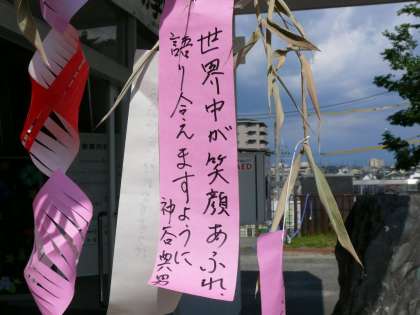 世界中が笑顔あふれ、
語り合えますように
神谷典男
AED